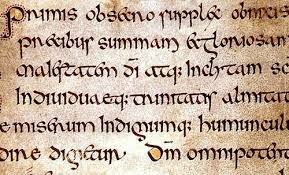 Primis obsecro supplex obnixis
precibus summam et gloriosam
maiestatem di atq: inclitam sc
individuaeq: trinitatis almitat
e miserum indignumq: humuncul
omnipotent